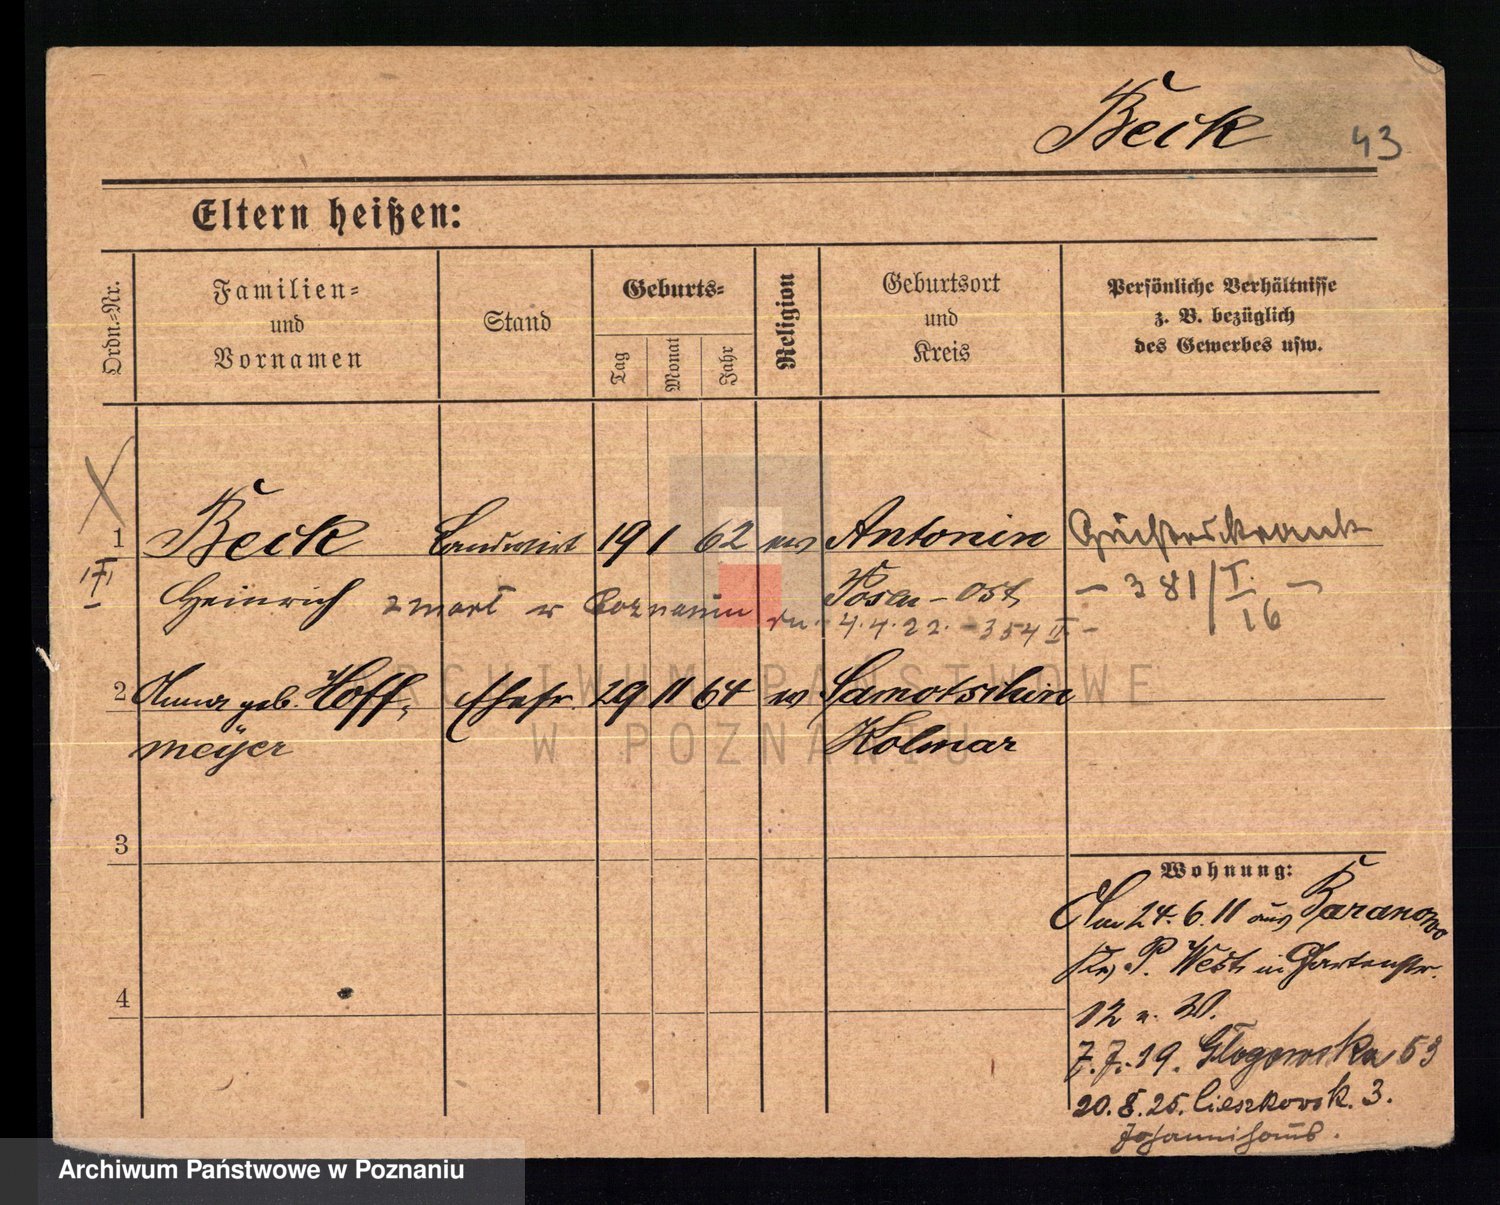 Beck 43
Eltern heißen:
Ordn.-Nr.
Familien-
und
Vornamen
Stand
Geburts-
Tag
Monat
Jahr
Religion
Geburtsort
und
Kreis
Persönliche Verhältnisse
z. B. bezüglich
des Gewerbes usw.
1 Beck Landwirt 19 1 62 ev Antonin
Heinrich zmarł w Poznaniu Posen-Ost
dn. 4.4.22. - 354 II -
- 381/I. -
16
2 Anna geb. Hoff- Ehefr. 29 11 64 ev Samotschin
meÿer Kolmar
3
4
Wohnung:
Am 24.6.11 aus Baranowo
Krs P. West in Gartenstr.
12 a. W.
7.7.19. Głogowska 53
20.8.25. Cieszkowsk. 3.
Johannihaus.
ARCHIWUM PAŃSTWOWE
W POZNANIU
Archiwum Państwowe w Poznaniu